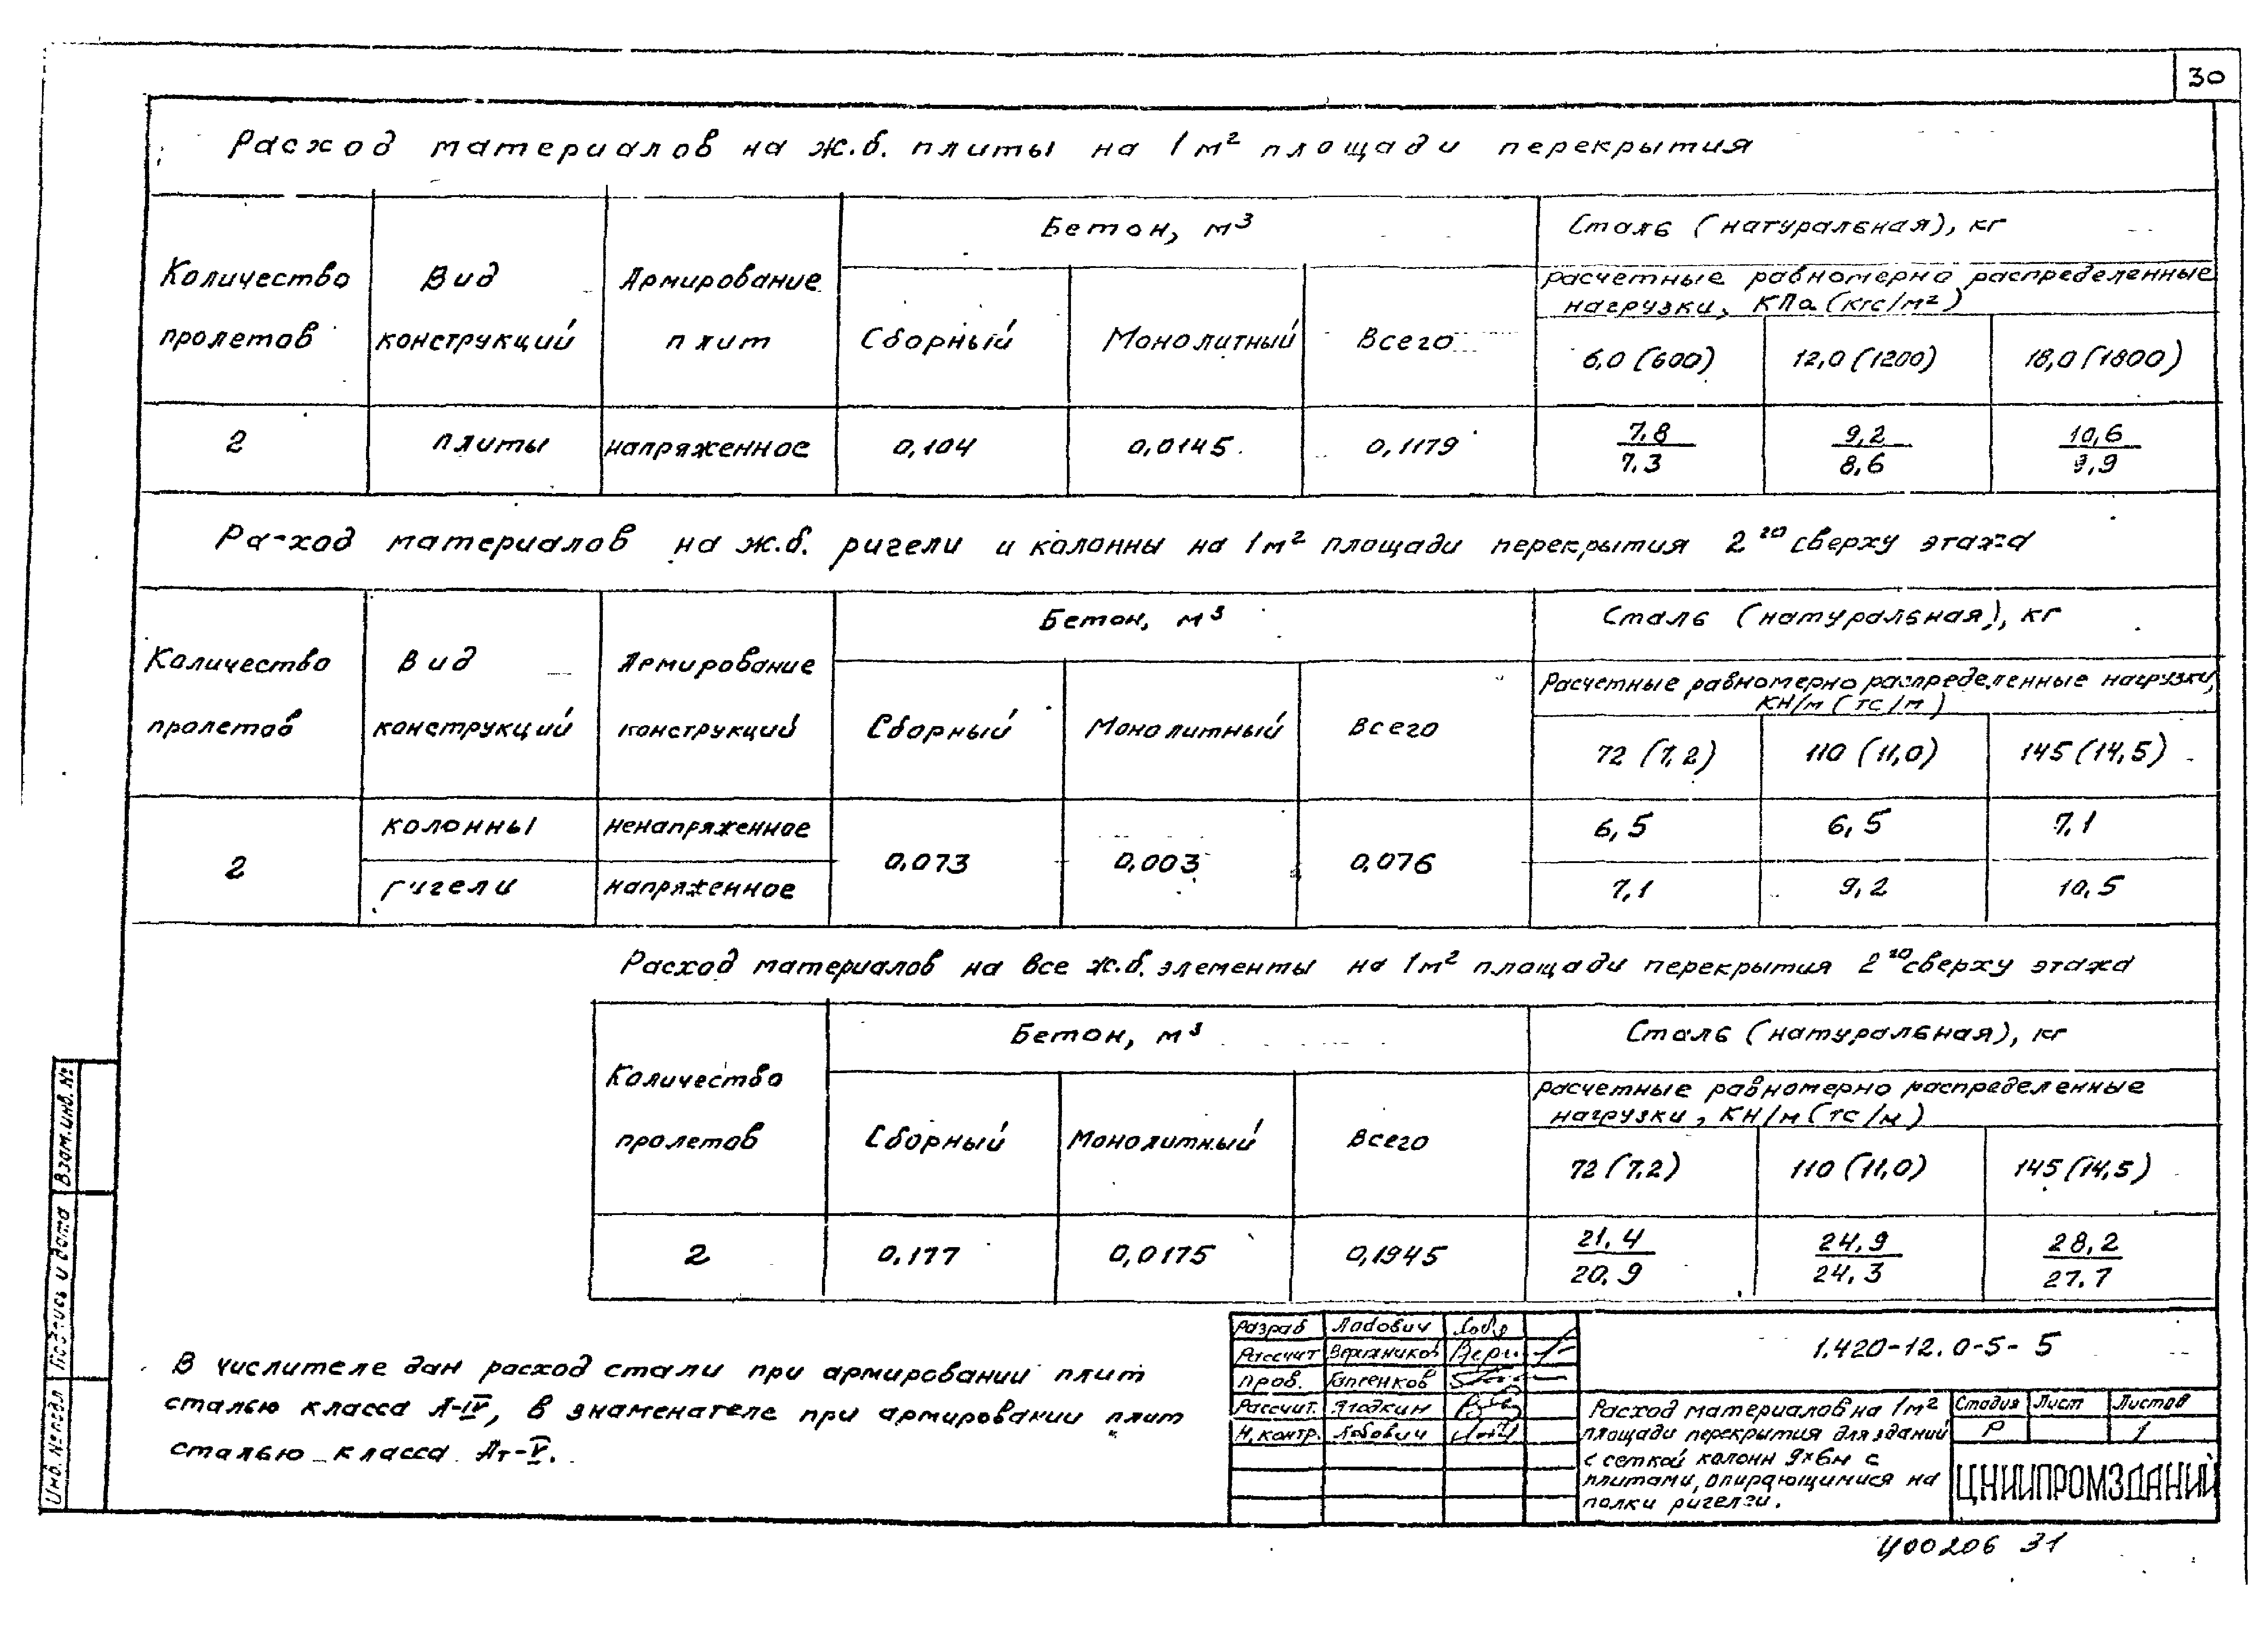 30
Расход материалов на ж.б. плиты на 1 м² площади перекрытия
Количество пролетов
Вид конструкций
Армирование плит
Бетон, м³
Сталь (натуральная), кг
Сборный
Монолитный
Всего
расчетные равномерно распределенные
нагрузки, КПа (кгс/м²)
6,0 (600)
12,0 (1200)
18,0 (1800)
2
плиты
напряженное
0,104
0,0145
0,1179
7,8
7,3
9,2
8,6
10,6
9,9
Ра-ход материалов на ж.б. ригели и колонны на 1м² площади перекрытия 2го сверху этажа
Количество пролетов
Вид конструкций
Армирование конструкций
Бетон, м³
Сталь (натуральная), кг
Сборный
Монолитный
Всего
Расчетные равномерно распределенные нагрузки,
КН/м (тс/м)
72 (7,2)
110 (11,0)
145 (14,5)
2
колонны
ненапряженное
ригели
напряженное
0,073
0,003
0,076
6,5
6,5
7,1
7,1
9,2
10,5
Расход материалов на все ж.б. элементы на 1м² площади перекрытия 2го сверху этажа
Количество пролетов
Бетон, м³
Сталь (натуральная), кг
Сборный
Монолитный
Всего
расчетные равномерно распределенные
нагрузки, КН/м (тс/м)
72 (7,2)
110 (11,0)
145 (14,5)
2
0,177
0,0175
0,1945
21,4
20,9
24,9
24,3
28,2
27,7
В числителе дан расход стали при армировании плит
сталью класса А-IV, в знаменателе при армировании плит
сталью класса Ат-V.
Разраб
Рассчит
Пров.
Рассчит. Ягодкин
Н.контр.
1.420-12.0-5-5
Расход материалов на 1м²
площади перекрытия для зданий
с сеткой колонн 9×6м с
плитами, опирающимися на
полки ригелей.
Стадия Лист Листов
Р 1
ЦНИИПРОМЗДАНИЙ
Ц00206 31
Взам.инв.№
Подпись и дата
Инв.№ подл